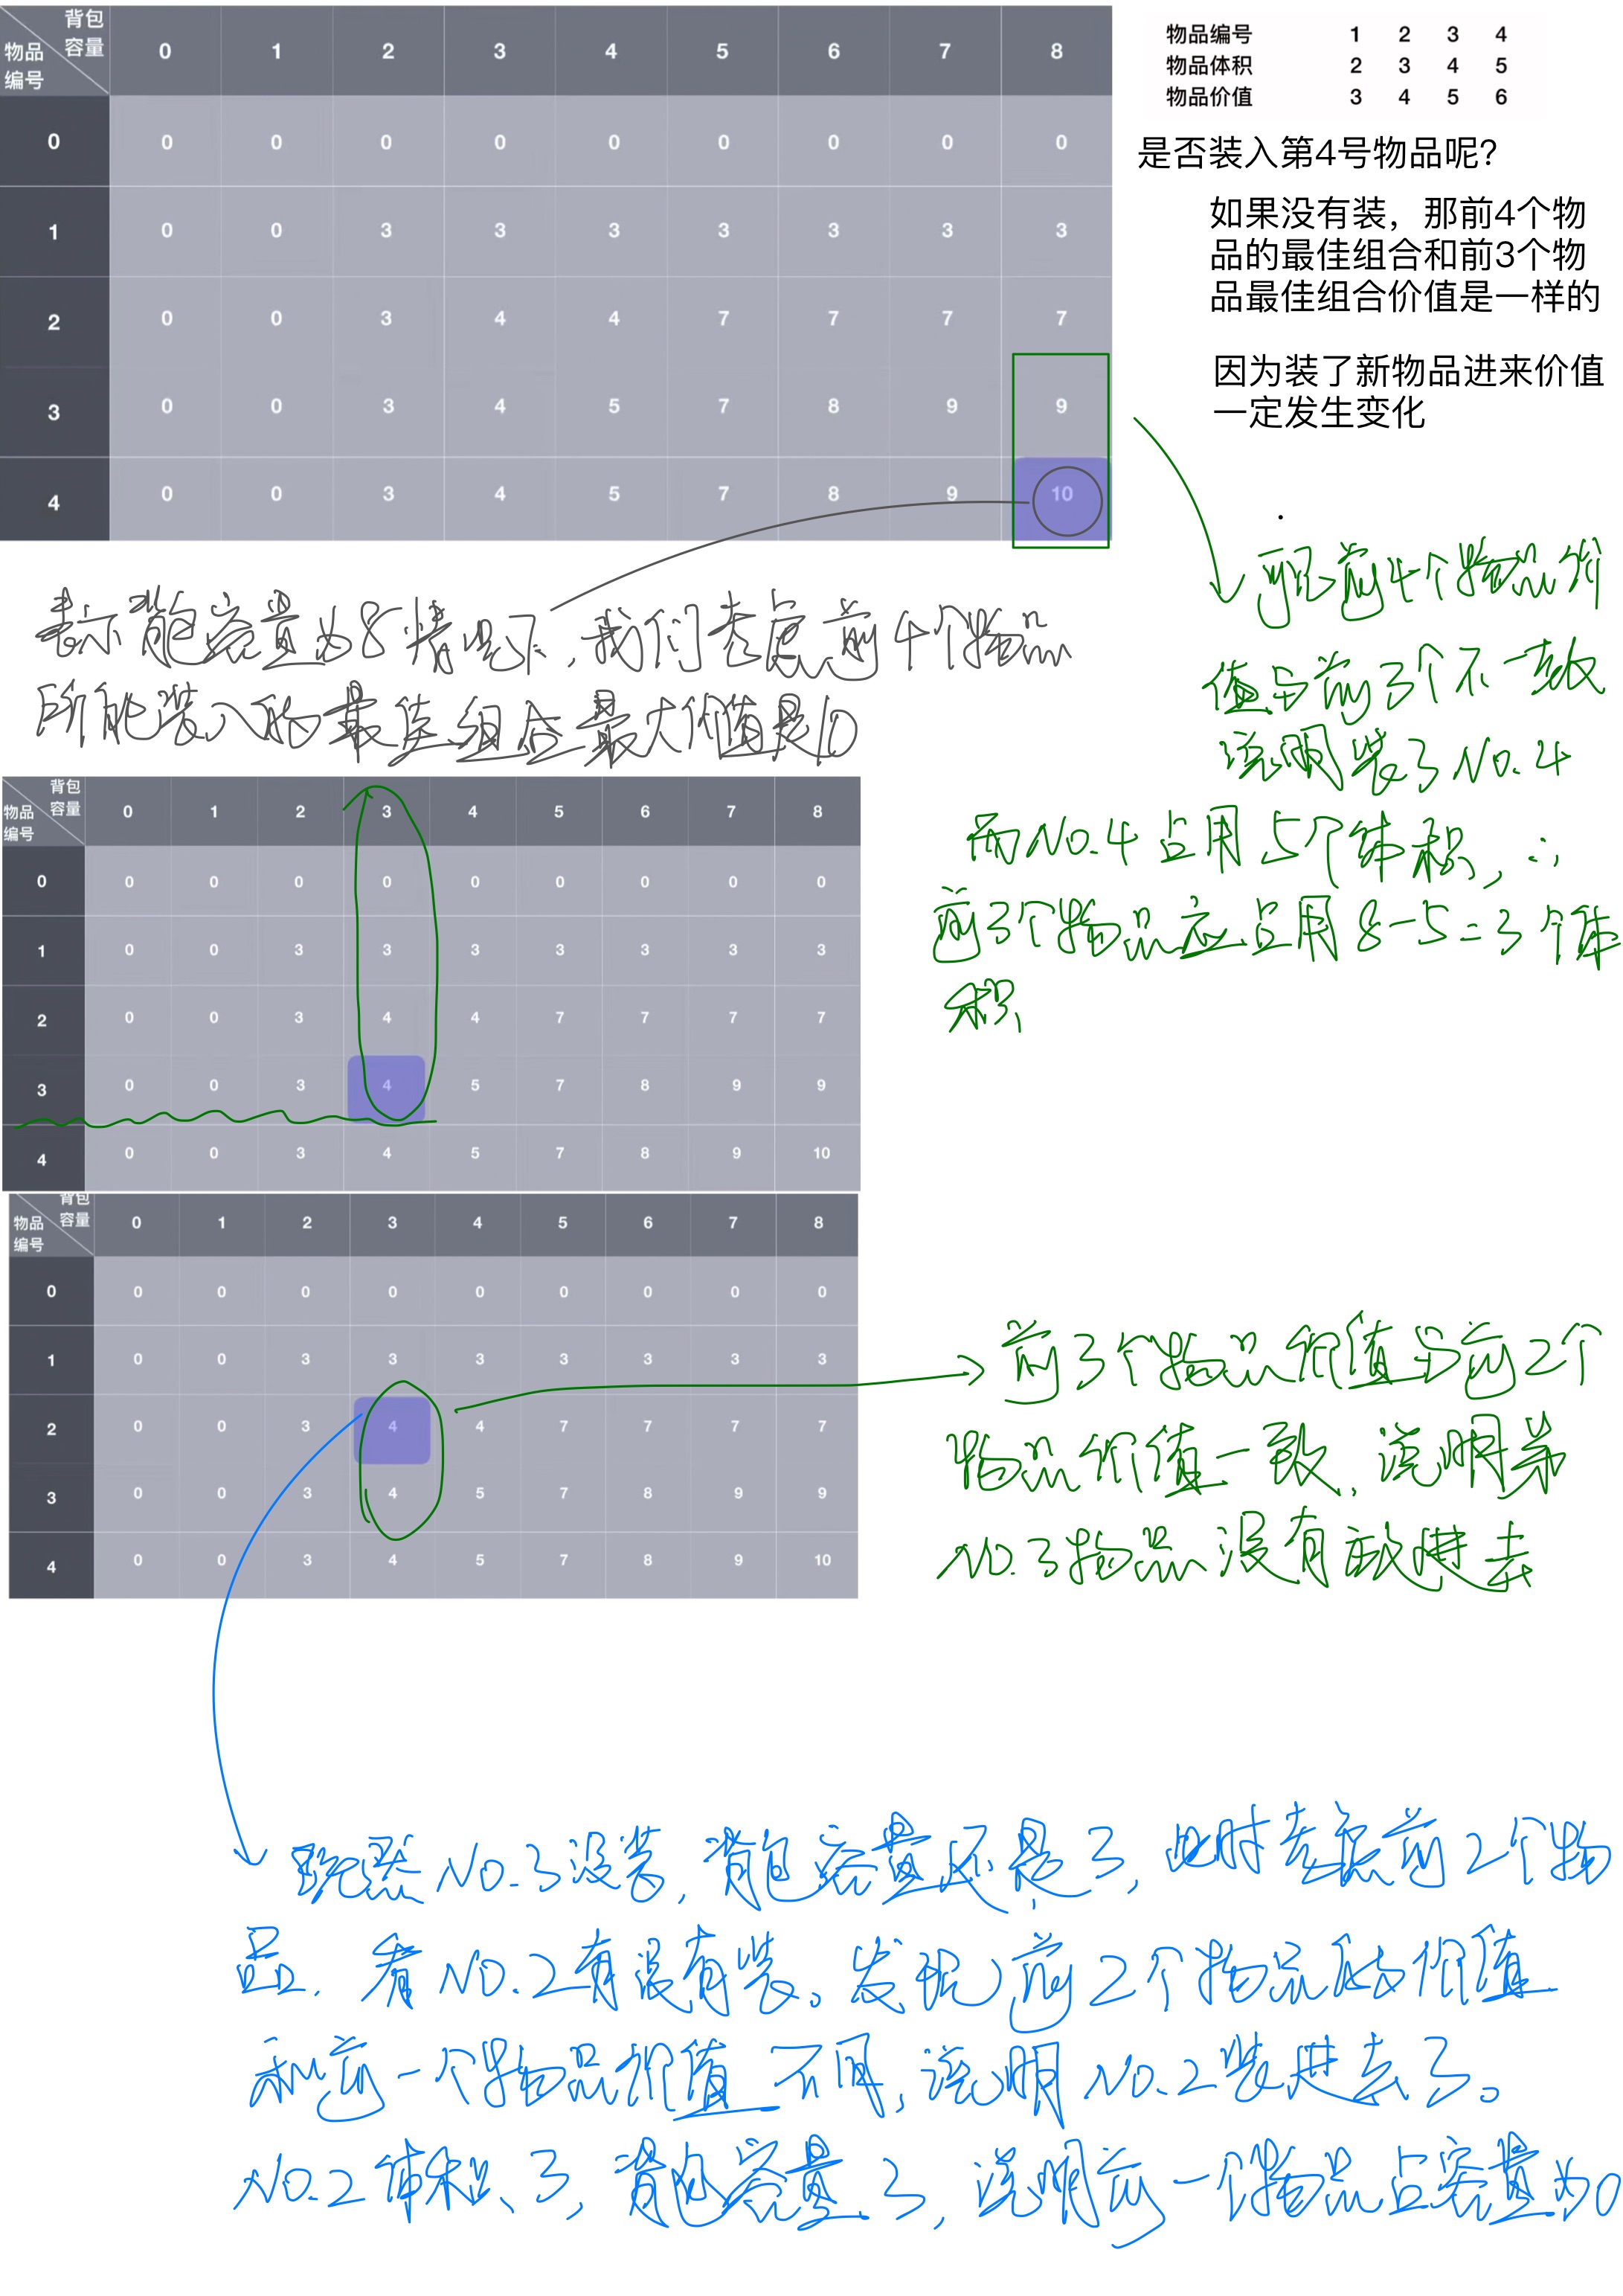 背包
容量 0 1 2 3 4 5 6 7 8
物品
编号
0 0 0 0 0 0 0 0 0 0
1 0 0 3 3 3 3 3 3 3
2 0 0 3 4 4 7 7 7 7
3 0 0 3 4 5 7 8 9 9
4 0 0 3 4 5 7 8 9 10
物品编号 1 2 3 4
物品体积 2 3 4 5
物品价值 3 4 5 6
是否装入第4号物品呢?
如果没有装，那前4个物
品的最佳组合和前3个物
品最佳组合价值是一样的
因为装了新物品进来价值
一定发生变化
可见前4个物品价
值与前3个不一致
说明装了No.4
而No.4占用5个体积,∴
前3个物品应占用8-5=3个体
积
表示背包容量为8情况下,我们考虑前4个物品
所能装入的最佳组合最大价值是10
背包
容量 0 1 2 3 4 5 6 7 8
物品
编号
0 0 0 0 0 0 0 0 0 0
1 0 0 3 3 3 3 3 3 3
2 0 0 3 4 4 7 7 7 7
3 0 0 3 4 5 7 8 9 9
4 0 0 3 4 5 7 8 9 10
背包
容量 0 1 2 3 4 5 6 7 8
物品
编号
0 0 0 0 0 0 0 0 0 0
1 0 0 3 3 3 3 3 3 3
2 0 0 3 4 4 7 7 7 7
3 0 0 3 4 5 7 8 9 9
4 0 0 3 4 5 7 8 9 10
前3个物品价值与前2个
物品价值一致,说明第
No.3物品没有放进去
既然No.3没装,背包容量还是3,此时考虑前2个物
品.看No.2有没有装。发现前2个物品的价值
和前一个物品价值不同,说明No.2装进去了。
No.2体积3,背包容量3,说明前一个物品占容量为0